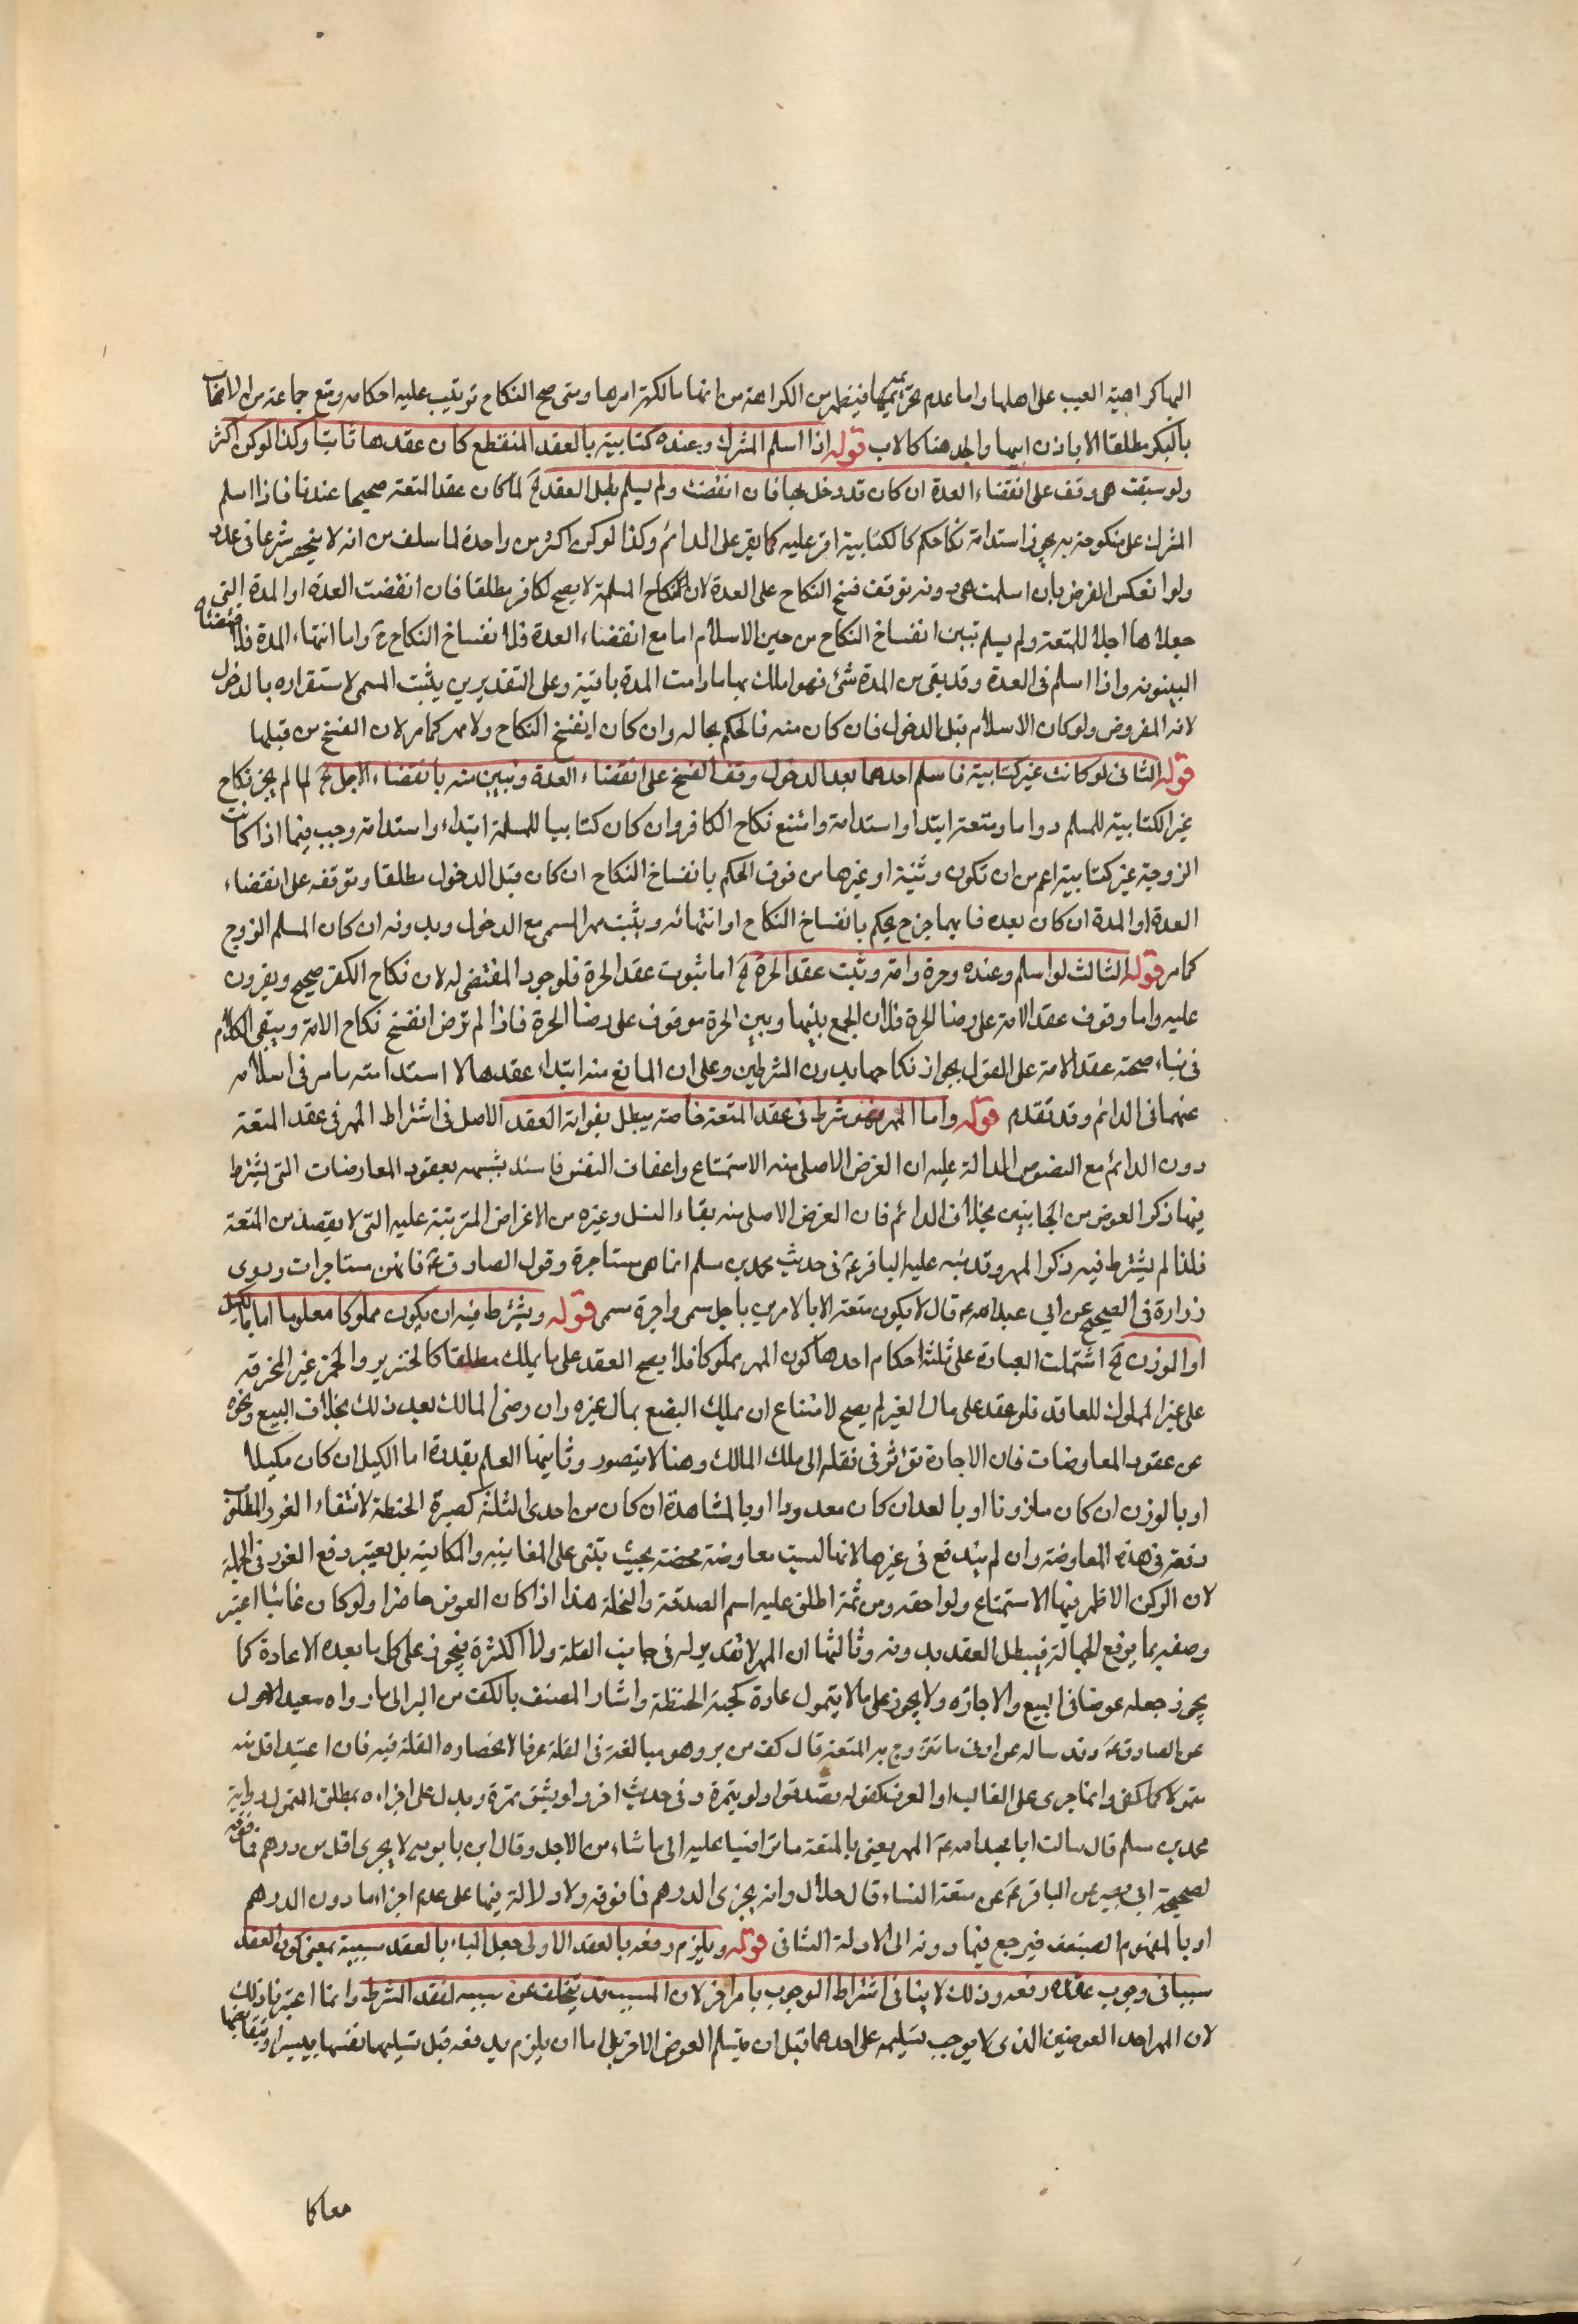 اليها كراهية العيب على اهلها واما عدم تحريمها فيظهر من الكراهة من انها مالكة امرها ومتى صح النكاح ترتب عليه احكامه ومنع جماعة من الاصحاب
بالبكر مطلقا الا باذن ابيها والجد هنا كالاب قوله اذا اسلم المشرك وعنده كتابية بالعقد المنقطع كان عقدها ثابتا وكذا لو كن اكثر
ولو سبقت هى وقف على انقضاء العدة ان كان قد دخل بها فان انقضت ولم يسلم بطل العقد الخ لما كان عقد المتعة صحيحا عندنا فاذا اسلم
المشرك على منكوحة به يجوز استدامة نكاحكم كالكتابية اقر عليه كما يقر على الدائم وكذا لو كن اكثر من واحدة لما سلف من انه لا ينحصر شرعا فى عدد
ولو انعكس الفرض بان اسلمت هى دونه توقف فسخ النكاح على العدة لان نكاح المسلمة لا يصح لكافر مطلقا فان انقضت العدة او المدة التى
جعلاها اجلا للمتعة ولم يسلم تبين انفساخ النكاح من حين الاسلام اما مع انقضاء العدة فلانفساخ النكاح به واما انتهاء المدة فلاقتضائه
البينونة واذا اسلم فى العدة وقد بقى من المدة شئ فهو املك بها ما دامت المدة باقية وعلى التقديرين يثبت المسمى لاستقراره بالدخول
لانه المفروض ولو كان الاسلام قبل الدخول فان كان منه فالحكم بحاله وان كان انفسخ النكاح ولا مهر كما مر لان الفسخ من قبلها
قوله الثانى لو كانت غير كتابية فاسلم احدهما بعد الدخول وقف الفسخ على انقضاء العدة وتبين منه بانقضاء الاجل الخ لما لم يجز نكاح
غير الكتابية للمسلم دواما ومتعة ابتداء واستدامة وامتنع نكاح الكافر وان كان كتابيا للمسلمة ابتداء واستدامة وجب فيما اذا كانت
الزوجة غير كتابية اعم من ان تكون وثنية او غيرها من فرق الحكم بانفساخ النكاح ان كان قبل الدخول مطلقا وتوقفه على انقضاء
العدة او المدة ان كان بعده فايهما جزح يحكم بانفساخ النكاح او انتهائه ويثبت مهر المسمى مع الدخول وبدونه ان كان المسلم الزوج
كما مر قوله الثالث لو اسلم وعنده وحرة وامة وثبت عقد الحرة الخ اما ثبوت عقد الحرة فلوجود المقتضى له لان نكاح الكفر صحيح ويقرون
عليه واما وقوف عقد الامة على رضا الحرة فلان الجمع بينهما وبين الحرة موقوف على رضا الحرة فاذا لم ترض انفسخ نكاح الامة ويبقى الكلام
فى بناء صحة عقد الامة على القول بجواز نكاحها بدون الشرطين وعلى ان المانع منه ابتداء عقدها لا استدامته ما مر فى اسلامه
عنهما فى الدائم وقد تقدم قوله واما المهر فهو شرط فى عقد المتعة خاصة يبطل بفواته العقد الاصل فى اشتراط المهر فى عقد المتعة
دون الدائم مع النصوص الدالة عليه ان الغرض الاصلى منه الاستمتاع واعفاف النفس فاشتد شبهه بعقود المعاوضات التى يشترط
فيها ذكر العوض من الجانبين بخلاف الدائم فان الغرض الاصلى منه بقاء النسل وغيره من الاغراض المترتبة عليه التى لا يقصد من المتعة
فلذا لم يشترط فيه ذكر المهر وقد نبه عليه الباقر ع فى حديث محمد بن مسلم انما هى مستاجرة وقول الصادق ع فانهن مستاجرات وروى
زرارة فى الصحيح عن ابي عبد الله ع قال لا يكون متعة الا بالامرين باجل مسمى واجرة مسمى قوله ويشترط فيه ان يكون مملوكا معلوما اما بالكيل
او الوزن الخ اشتملت العبارة على ثلثة احكام احدها كون المهر مملوكا فلا يصح العقد على ما يملك مطلقا كالخنزير والخمر غير المحترقه
على غير المملوك للعاقد فلو عقد على مال الغير لم يصح لامتناع ان يملك البضع بمال غيره وان رضى المالك بعد ذلك بخلاف البيع ونحوه
عن عقود المعاوضات فان الاجارة تؤثر فى نقله الى ملك المالك وهنا لا يتصور وثانيها العلم بقدره اما الكيل ان كان مكيلا
او بالوزن ان كان ملزونا او بالعد ان كان معدودا او بالمشاهدة ان كان من احدى الثلثة كصبرة الحنطة لانتفاء الغرر المطلوب
دفعه فى هذه المعاوضة وان لم يندفع فى غيرها لانها ليست معاوضة محضة بحيث تبتنى على المغابنه والمكايسه بل يعتبر دفع الغرر فى الجملة
لان الركن الاظهر فيها الاستمتاع ولواحقه ومن ثمة اطلق عليه اسم الصدقة والنحلة هذا اذا كان العوض حاضرا ولو كان غائبا اعتبر
وصفه بما يرفع الجهالة فيبطل العقد بدونه وثالثها ان المهر لا تقدير له فى جانب القلة ولا الكثرة فيجوز على كل ما بعده الاعادة كما
يجوز جعله عوضا فى البيع والاجازه ولا يجوز على ما لا يتمول عادة كحبة الحنطة واشار المصنف بالكف من البر الى ما رواه سعيد الاحول
عن الصادق ع وقد ساله عن ادنى ما تتزوج به المتعة قال كف من بر وهو مبالغة فى القلة عرفا لا انحصاره القلة فيه فان اعتبد اقل منه
متمولا كما كفى وانما جرى على الغالب او العرف كقوله تصدقوا ولو بتمرة وفى حديث اخر ولو بشق تمرة ويدل على اجزاءه بمطلق التمول رواية
محمد بن مسلم قال سالت ابا عبد الله ع المهر يعنى بالمتعة ما تراضيا عليه الى ما شاء من الاجل وقال ابن بابويه لا يجزى اقل من درهم فما فوقه
لصحيحة ابى بصير عن الباقر ع عن متعة النساء قال حلال وانه يجزى الدرهم فما فوقه ولا دلالة فيها على عدم اجزاء ما دون الدرهم
او بالمفهوم الضعيف فيرجع فيما دونه الى الادلة الثانى قوله ويلزم دفعه بالعقد الاولى جعل الباء بالعقد سببية بمعنى كون العقد
سببا فى وجوب دفعه وذلك لا ينافى اشتراط الوجوب بامر اخر لان المسبب قد يتخلف عن سببه لفقد الشرط وانما اعتبرنا ذلك
لان المهر احد العوضين الذى لا يوجب تسليمه على احدهما قبل ان يتسلم العوض الاخر بل اما ان يلزم بدفعه قبل تسليمها نفسها بيسير او يتقابضها
معا كا